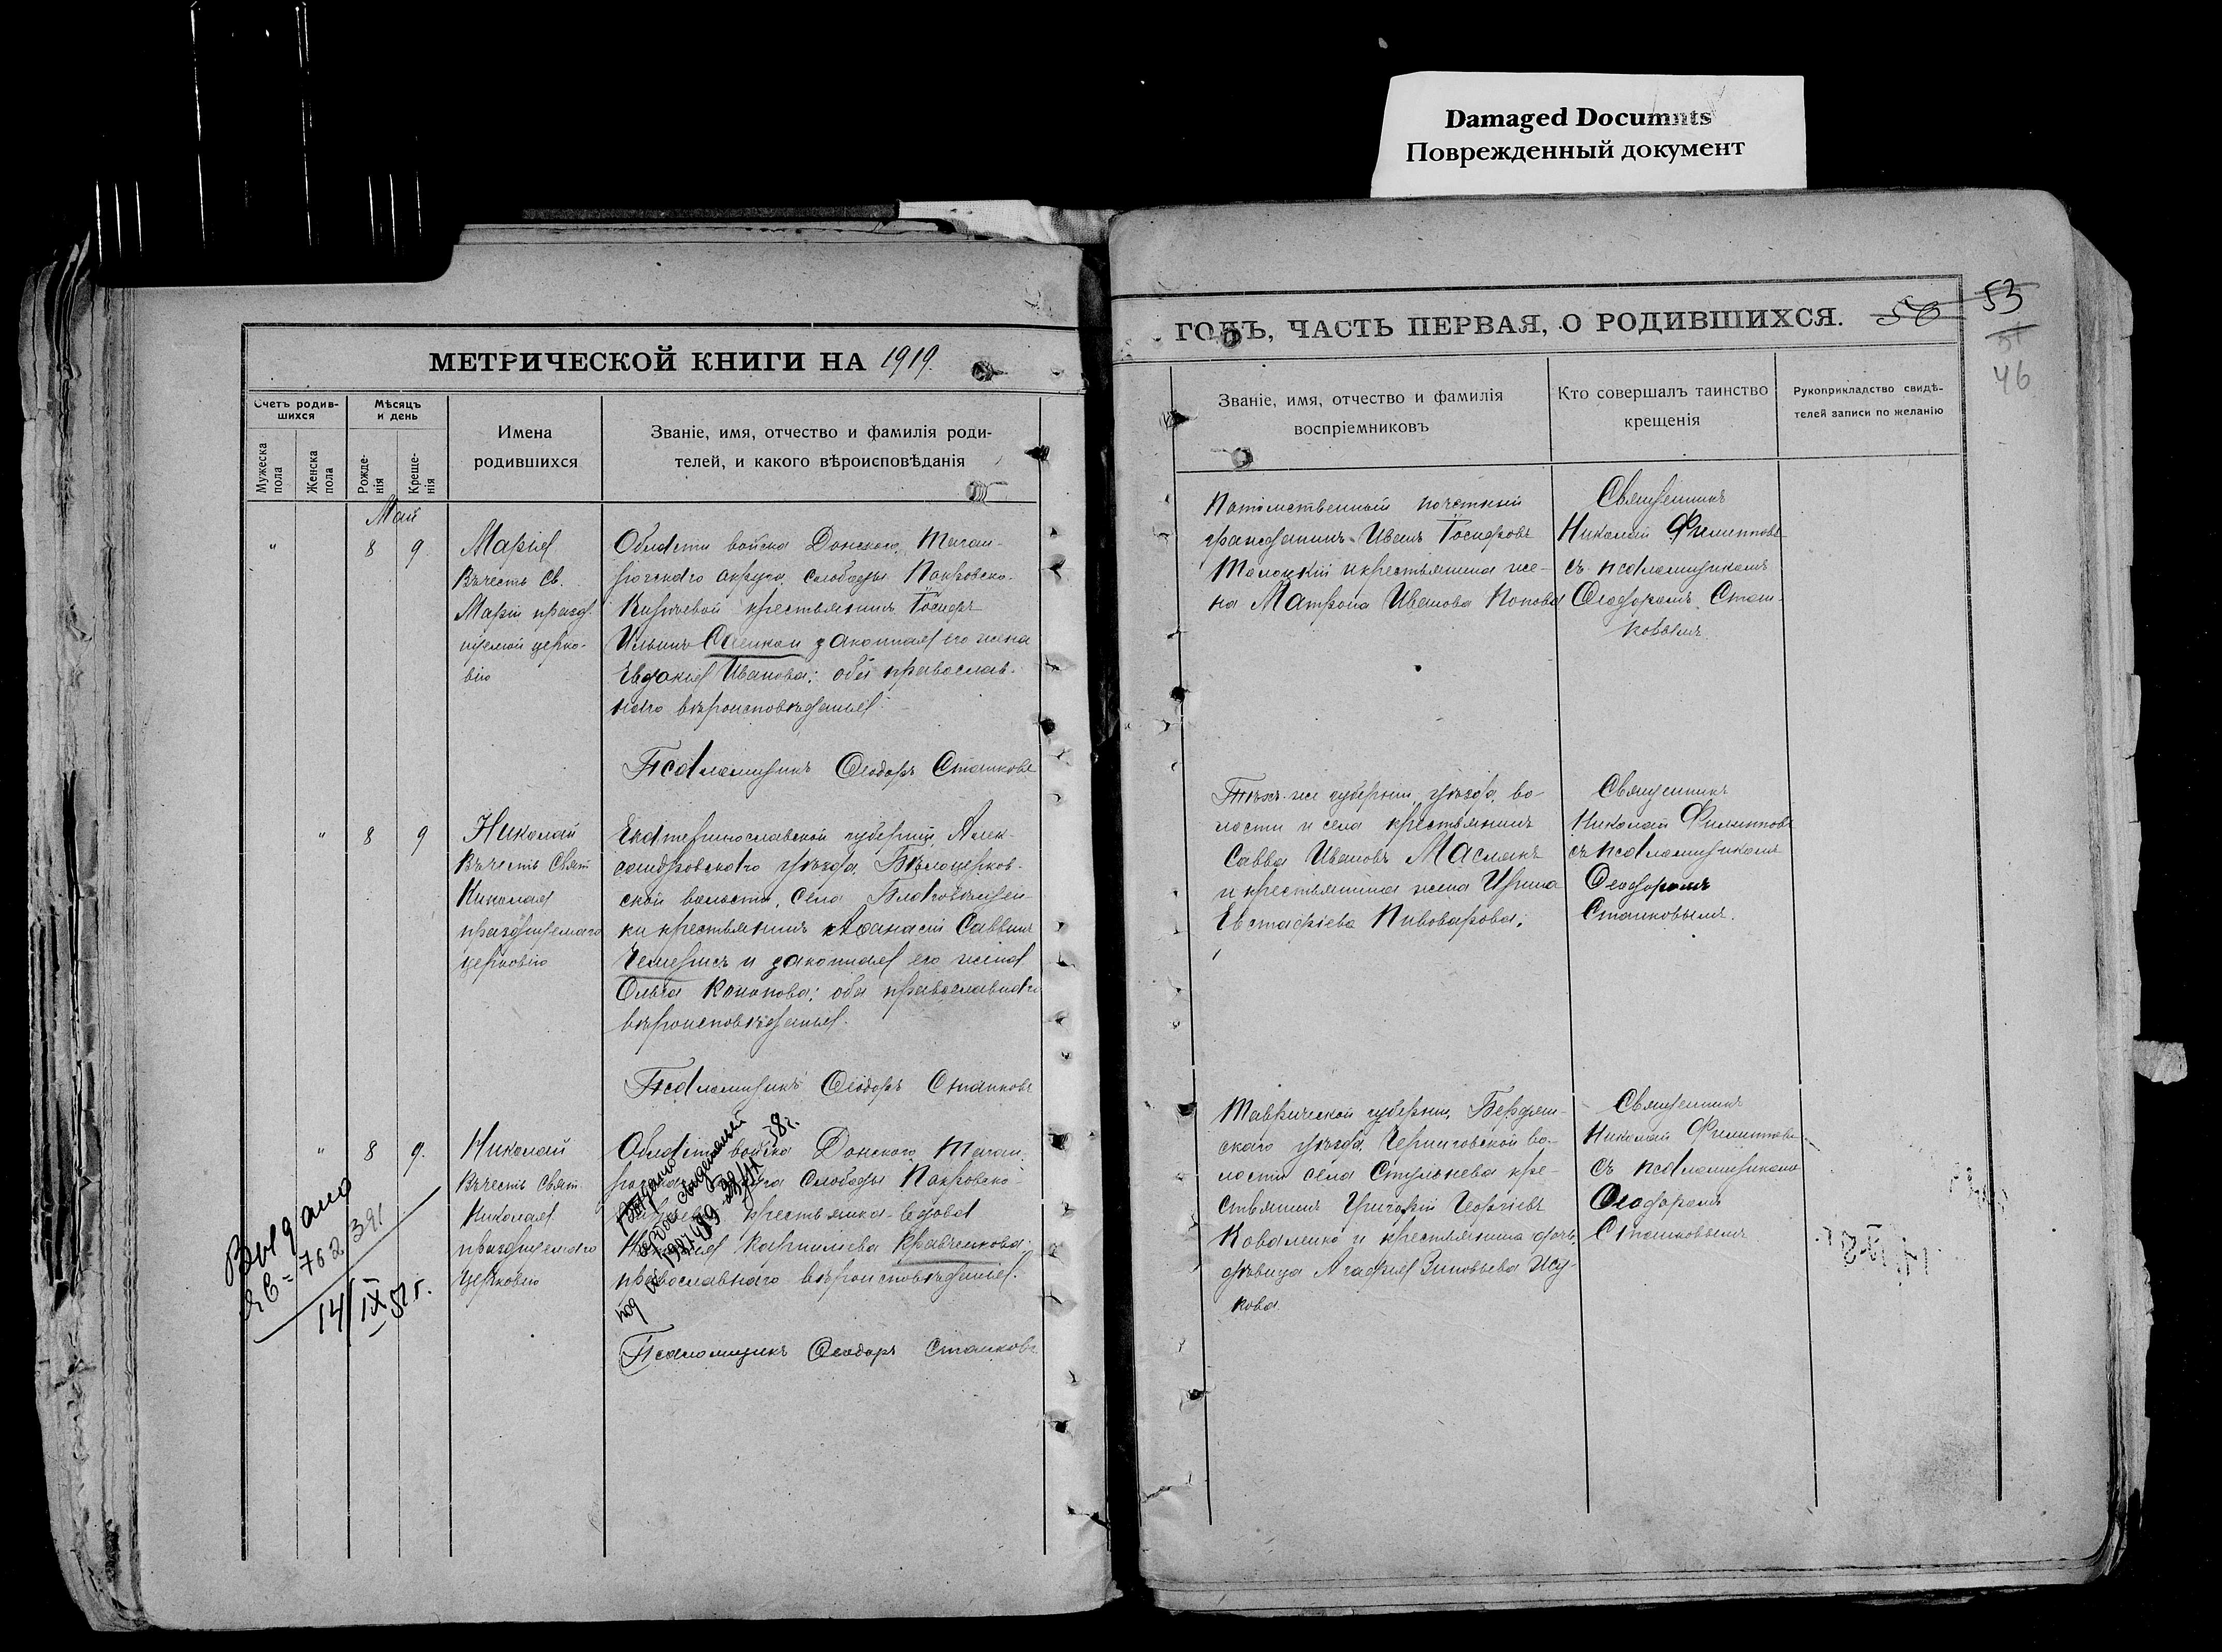 Damaged Documnts
Поврежденный документ
МЕТРИЧЕСКОЙ КНИГИ НА 1919.
Счетъ родив-
шихся
Мѣсяцъ
и день
Мужеска
пола
Женска
пола
Рожде-
нія
Креще-
нія
Имена
родившихся
Званіе, имя, отчество и фамилія роди-
телей, и какого вѣроисповѣданія
Май
" 8 9.
Марія
Въ честь Св.
Маріи празд-
нуемой церко-
вію
Области войска Донского, Таган-
рогскаго округа, слободы Покровско-
Киреевой крестьянинъ Іосифъ
Ильинъ и законная его жена
Евдокія Иванова; оба православ-
наго вѣроисповѣданія.
Псаломщикъ Ѳеодоръ Сташковъ
" 8 9
Николай
Въ честь Свят.
Николая
празднуемаго
церковію
Екатеринославской губерніи, Алек-
сандровскаго уѣзда, Бѣлоцерков-
ской волости, села Благовѣщен-
ки крестьянинъ Аѳанасій Саввинъ
Чемерисъ и законная его жена
Ольга Кононова; оба православнаго
вѣроисповѣданія.
Псаломщикъ Ѳеодоръ Сташковъ
" 8 9.
Николай
Въ честь Свят.
Николая
празднуемаго
церковію
Области войска Донского, Таган-
слободы Покровско-
крестьянка-вдова
Карпилиева Кравченкова
православнаго вѣроисповѣданія.
Псаломщикъ Ѳеодоръ Сташковъ
Выдано
762/391
14/IX-52 г.
38 г.
ГОДЪ, ЧАСТЬ ПЕРВАЯ, О РОДИВШИХСЯ.
50 53
46
Званіе, имя, отчество и фамилія
воспріемниковъ
Кто совершалъ таинство
крещенія
Рукоприкладство свидѣ-
телей записи по желанію
Потомственный почетный
гражданинъ Иванъ Іосифовъ
и крестьянина же-
на Матрона Иванова Попова
Священникъ
Николай Филипповъ
съ псаломщикомъ
Ѳеодоромъ Сташ-
ковымъ.
Тѣхъ-же губерніи, уѣзда, во-
лости и села крестьянинъ
Савва Ивановъ Маслакъ
и крестьянина жена Ирина
Евстафіева Пивоварова;
Священникъ
Николай Филипповъ
съ псаломщикомъ
Ѳеодоромъ
Сташковымъ.
Таврической губерніи, Бердян-
скаго уѣзда, Черниговской во-
лости села Стульнева кре-
стьянинъ Григорій Георгіевъ
Коваленко и крестьянина дочь,
дѣвица Агафія Зиновьева Жу-
кова
Священникъ
Николай Филипповъ
съ псаломщикомъ
Ѳеодоромъ
Сташковымъ